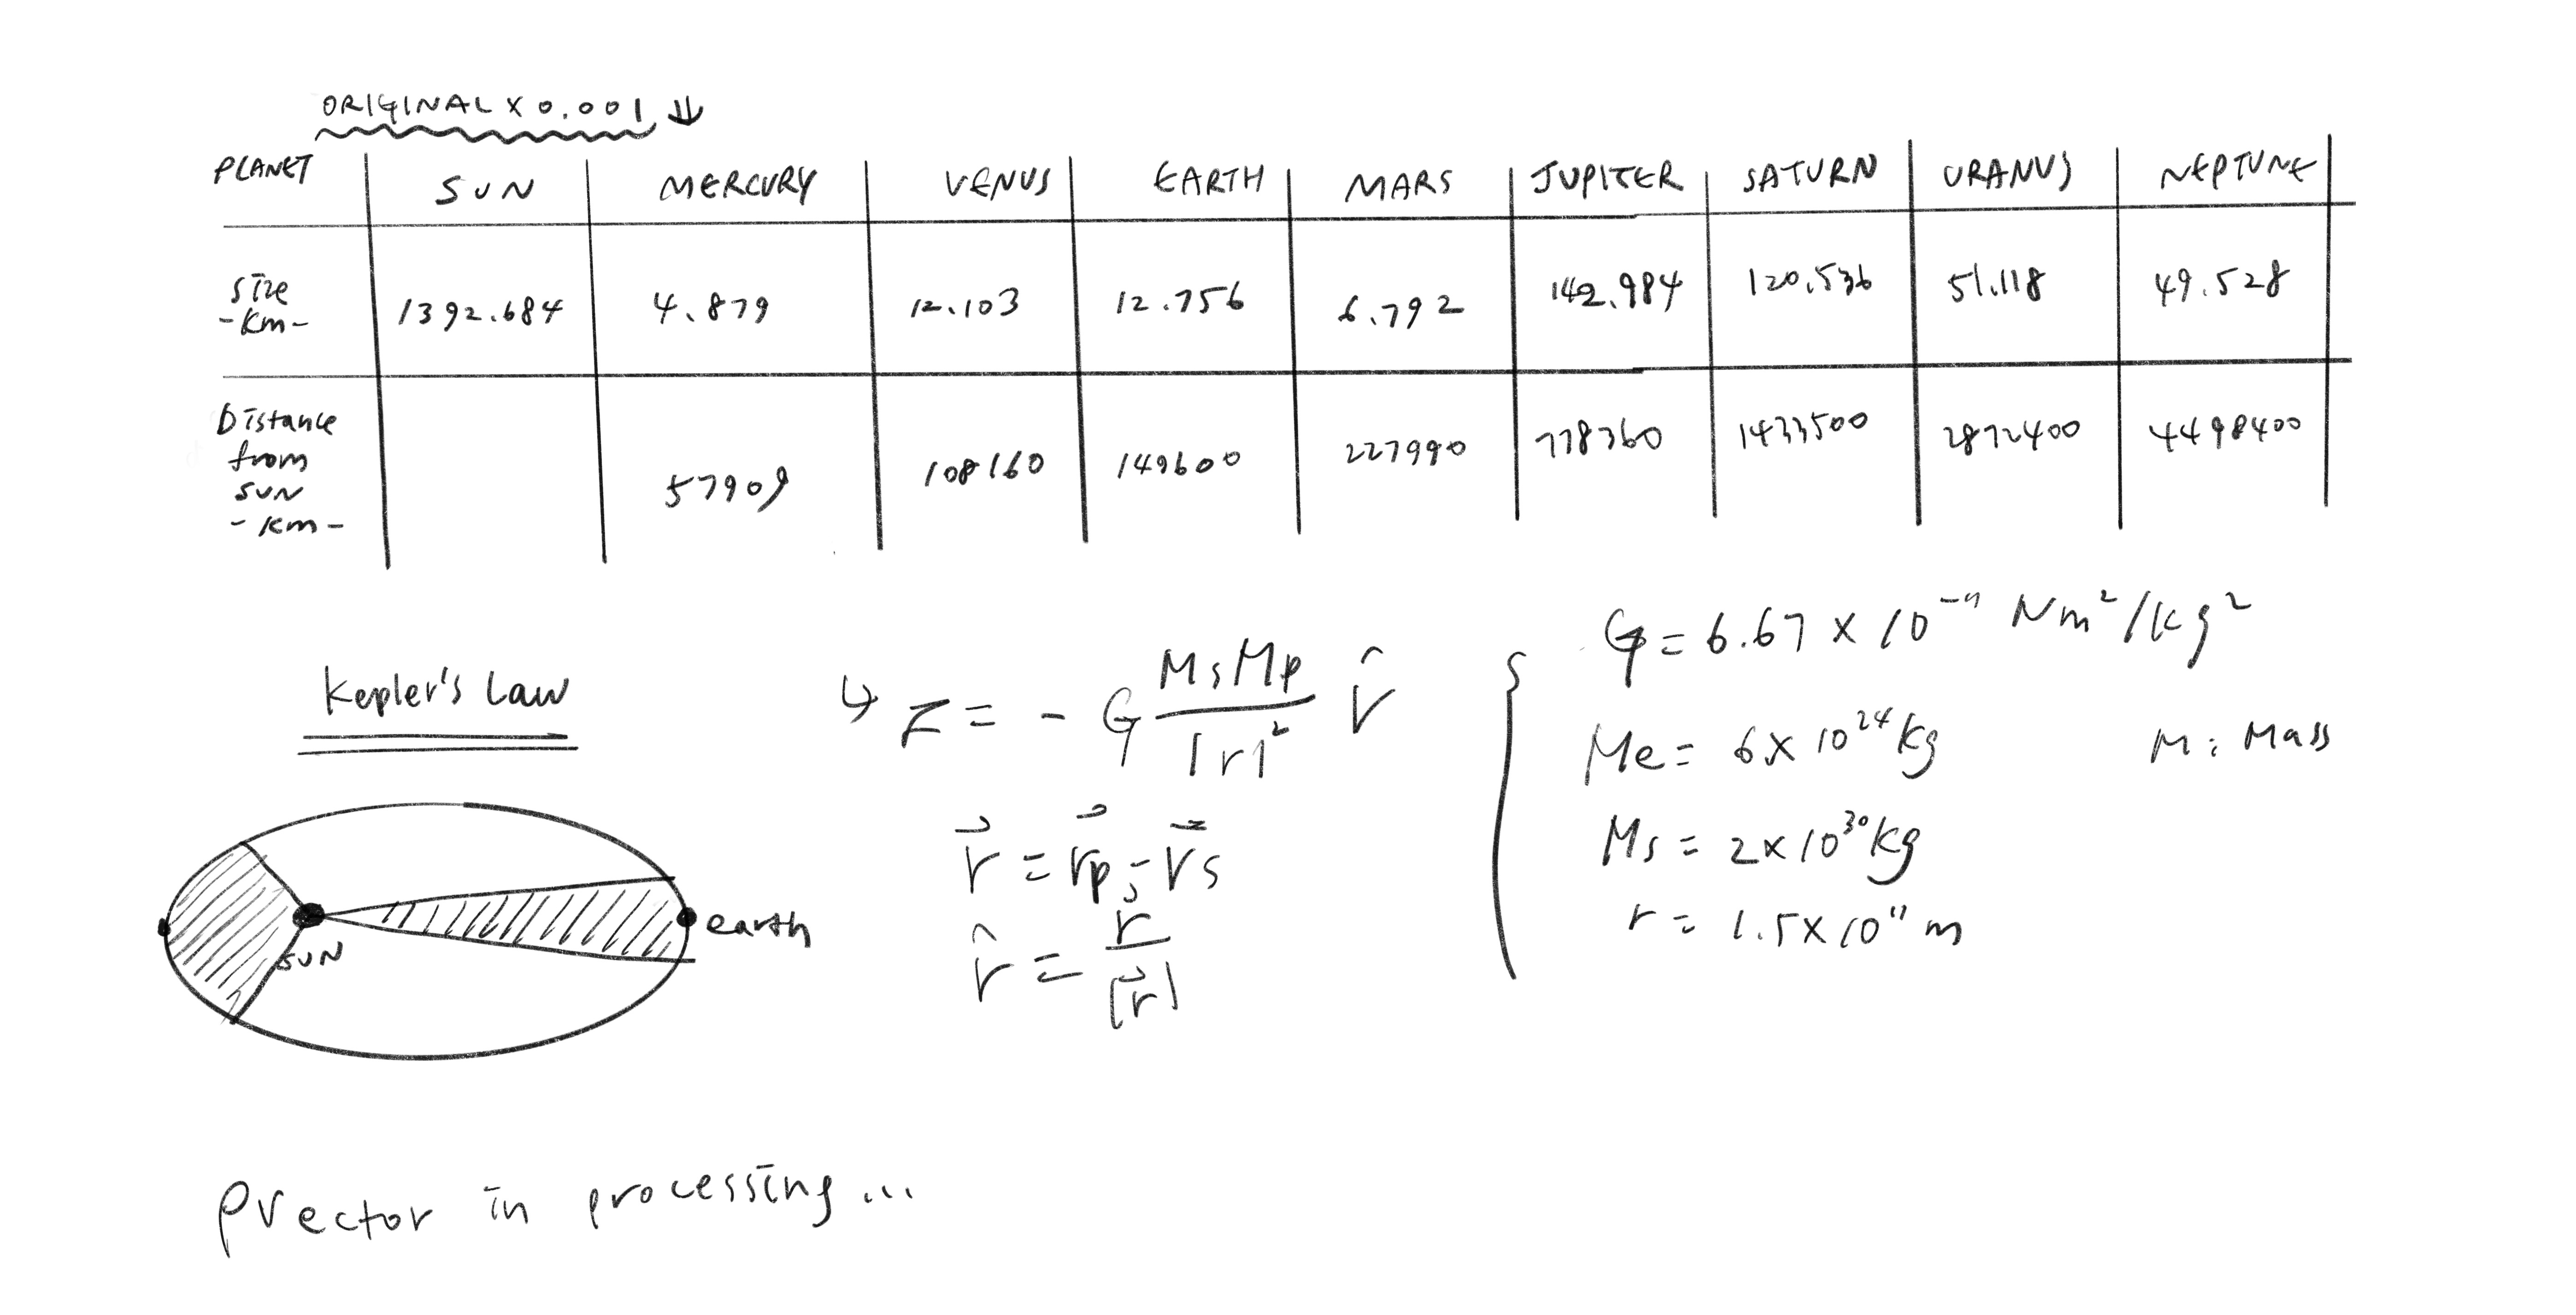 ORIGINAL X 0.001 ↓
PLANET SUN MERCURY VENUS EARTH MARS JUPITER SATURN URANUS NEPTUNE
Size 1392.684 4.879 12.103 12.756 6.792 142.984 120.536 51.118 49.528
-Km-
Distance 57909 108160 149600 227990 778360 1433500 2872400 4498400
from
SUN
-Km-
Kepler's Law
↳ F = - G MsMp/|r|² r̂
r⃗ = r⃗p - r⃗s
r̂ = r/|r⃗|
G = 6.67 x 10⁻¹¹ Nm²/kg²
Me = 6 x 10²⁴ kg M: Mass
Ms = 2 x 10³⁰ kg
r = 1.5 x 10¹¹ m
SUN
earth
Pvector in processing...